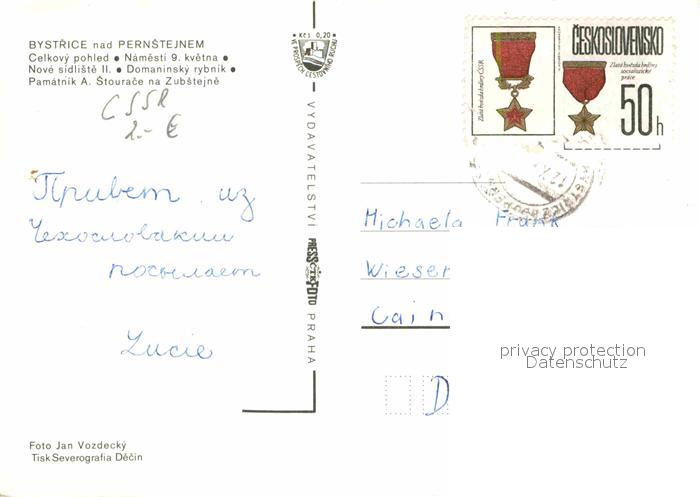 BYSTŘICE nad PERNŠTEJNEM
Celkový pohled • Náměstí 9. května •
Nové sídliště II. • Domaninský rybník •
Památník A. Štourače na Zubštejně
ČSSR
2.- €
Kčs 0,20
VE PROSPĚCH CESTOVNÍHO RUCHU
ČESKOSLOVENSKO
Zlatá hvězda hrdiny ČSSR
Zlatá hvězda hrdiny
socialistické
práce
50h
Привет из
Чехословакии
посылает
Lucie
VYDAVATELSTVÍ PRESSFOTO PRAHA
ČTK
Michaela Frank
Wieser
Cain
D
privacy protection
Datenschutz
Foto Jan Vozdecký
Tisk Severografia Děčín